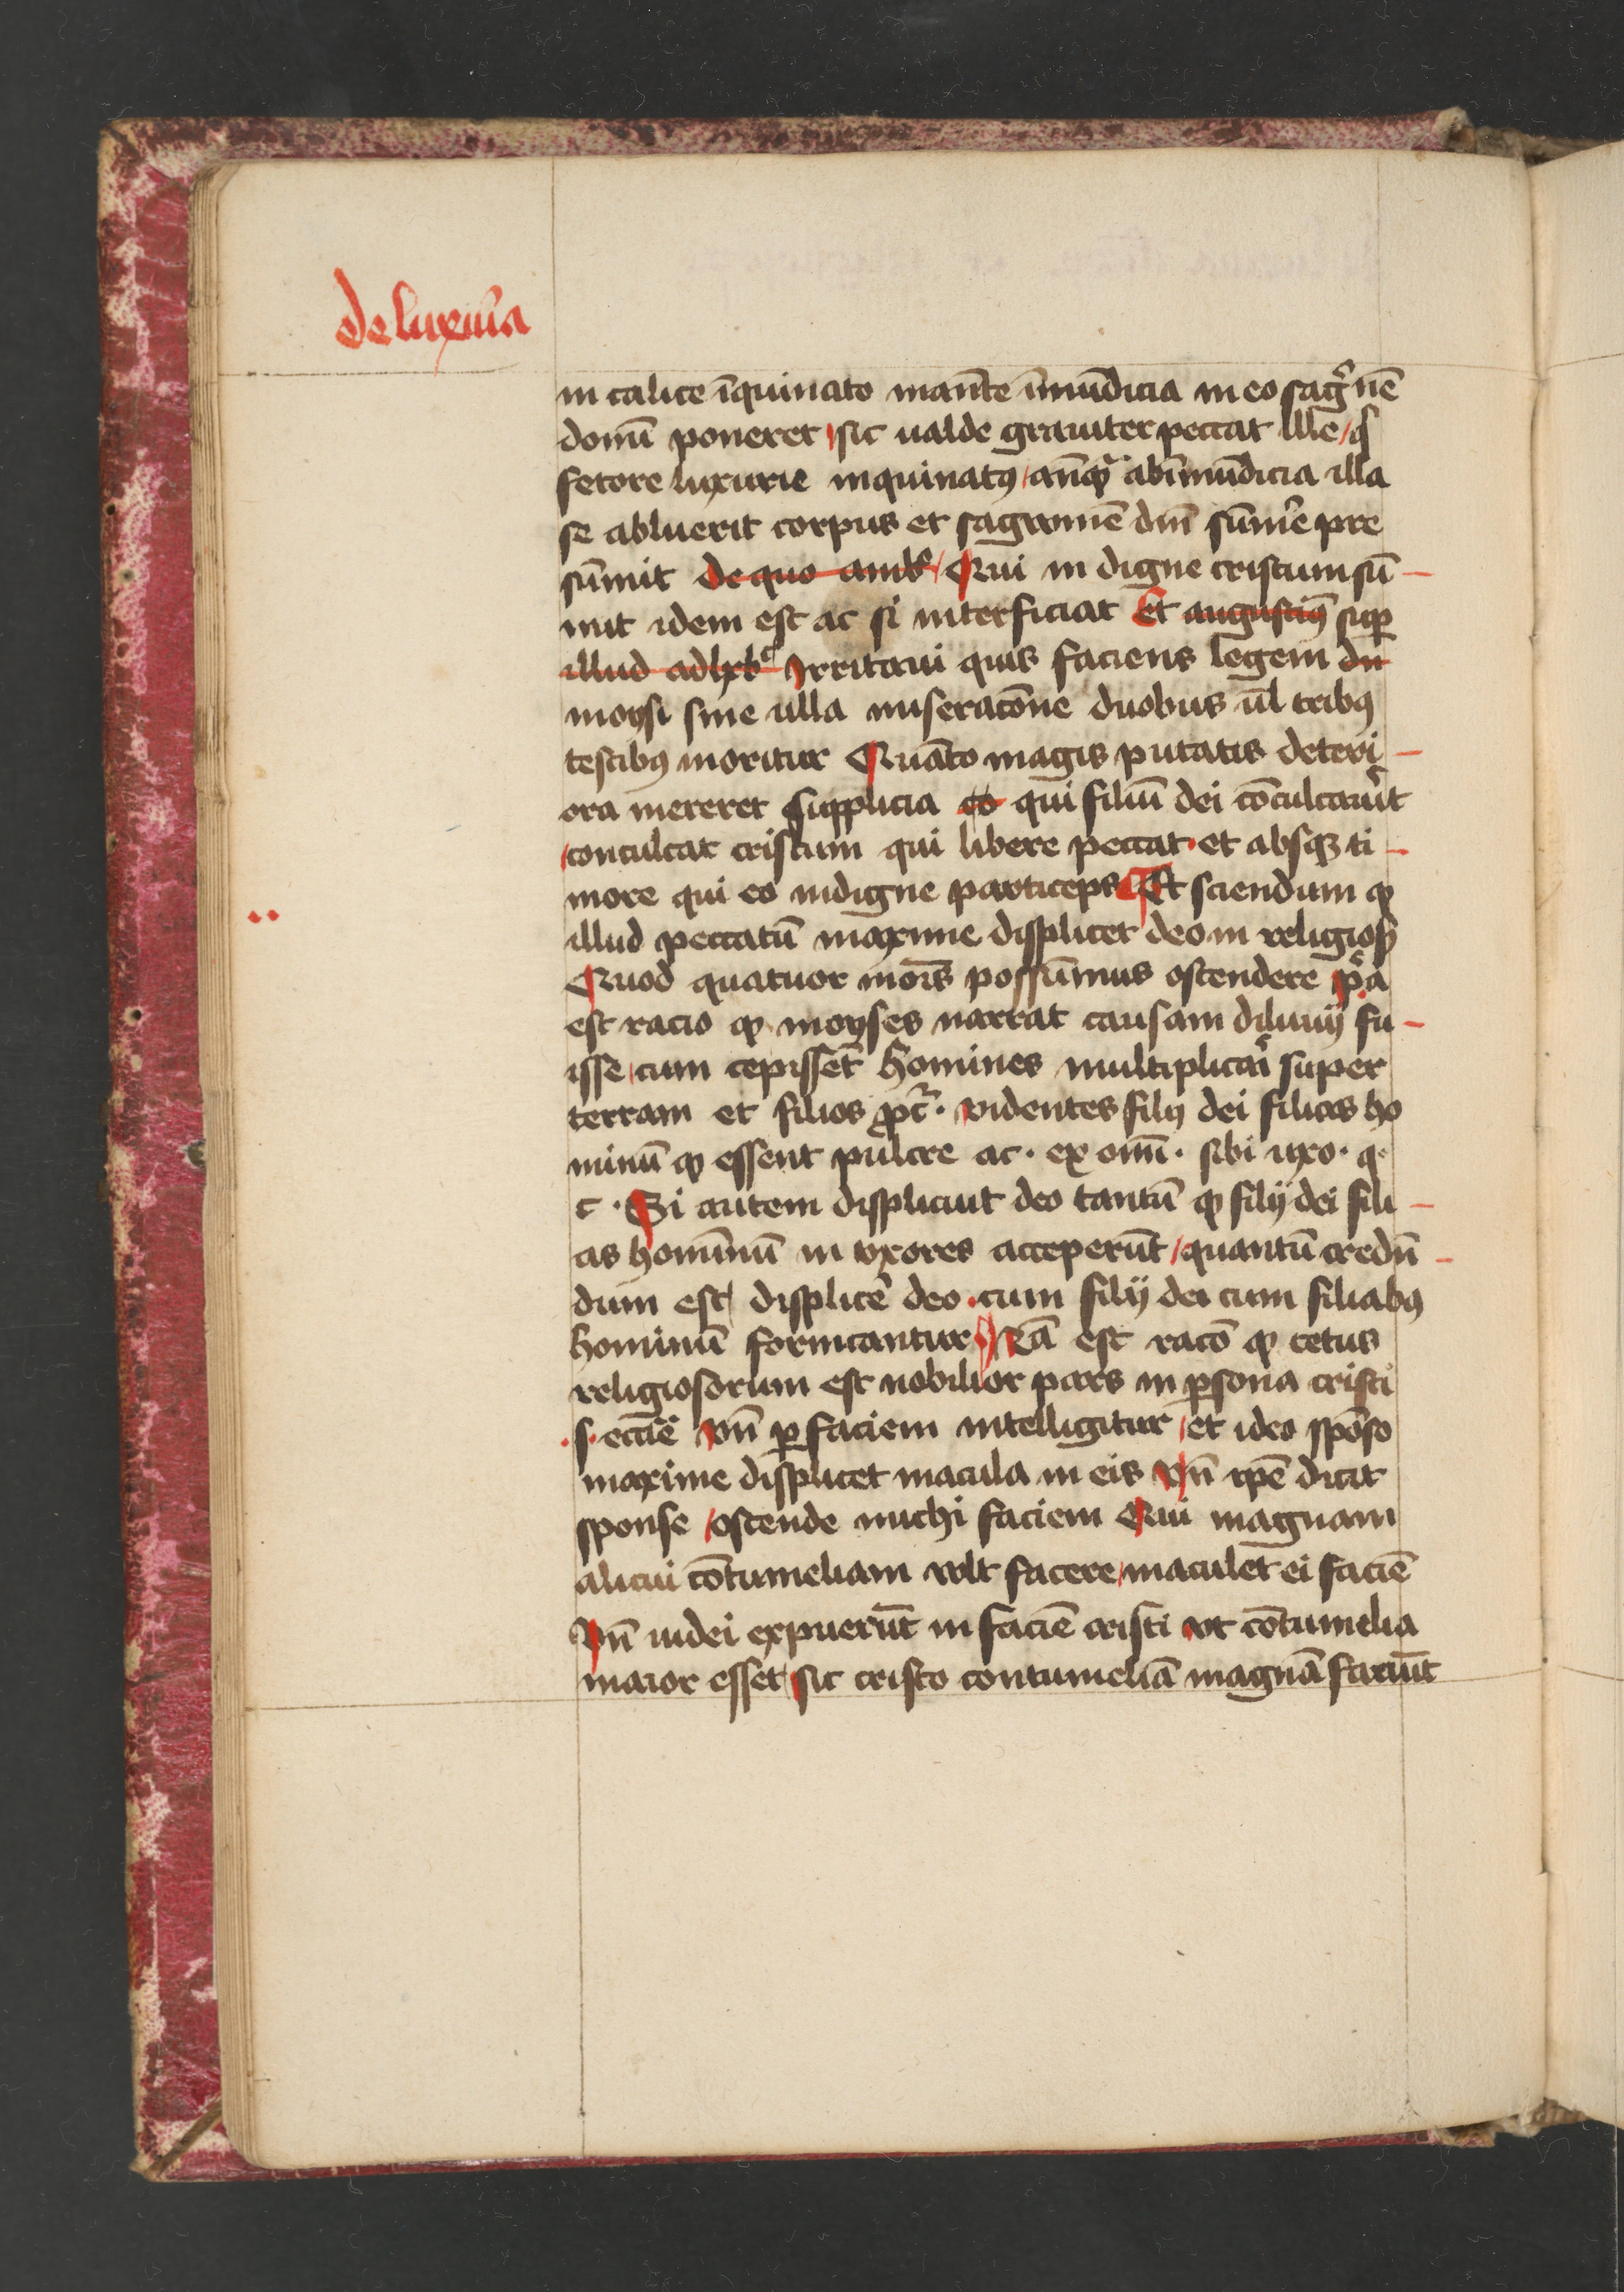 de luxuria
in calice īquinato manēte īmūdicia in eo sagᵃ̄ uē
domū poneret / sic ualde grauiter peccat ille / qͥ
fetore luxurie inquinatꝰ / anꝙᷓ ab īmūdicia illa
se abluerit corpus et sagramē dn̄i sūme᷑ pre
sūmit de quo amb᷑ / Qui in digne cristum sū
mit idem est ac si interficiat Et augustinꝰ suꝑ
illud ad heb᷑ Irritaui quis faciens legem dn̄
moysi sine ulla miseracōne duobus ul̄ tribꝰ
testibꝰ moritur Quāto magis putatis deteri
ora mereret supplicia eo qui filiū dei cōculcauit᷑
conculcat cristum qui libere peccat · et absqꝫ ti
more qui eo indigne particeps Et sciendum ꝙ
illud peccatū maxime displicet deo in religiosꝭ
Quod quatuor mōis possūmus ostendere pᷓa
est racio ꝙ moyses narrat causam diluuij fu
isse / cum cepissēt homines multiplica᷑i super
terram et filios ꝓc᷑ · videntes filij dei filias ho
minū ꝙ essent pulcre ac · ex om̄i · sibi uxo · q ·
c · Si autem displiciut deo tantū ꝙ filij dei fili
as hominū in vxores acceperūt / quantū credū
dum est / displice᷑ deo · cum filij dei cum filiabꝰ
hominū fornicantur 2ᵃ est racō ꝙ cetus
religiosorum est nobilior pars in ꝑsona cristi
· s · eccīe vn̄ ꝑ faciem intelligitur / et ideo spōso
maxime displicet macula in eis vn̄ ip̄e dicit
sponse / ostende michi faciem Qui magnam
alicui cōtumeliam vult facere / maculet ei faciē
Vn̄ iudei expuerūt in faciē cristi vt cōtumelia
maior esset / sic cristo contumeliā magnā faciūt